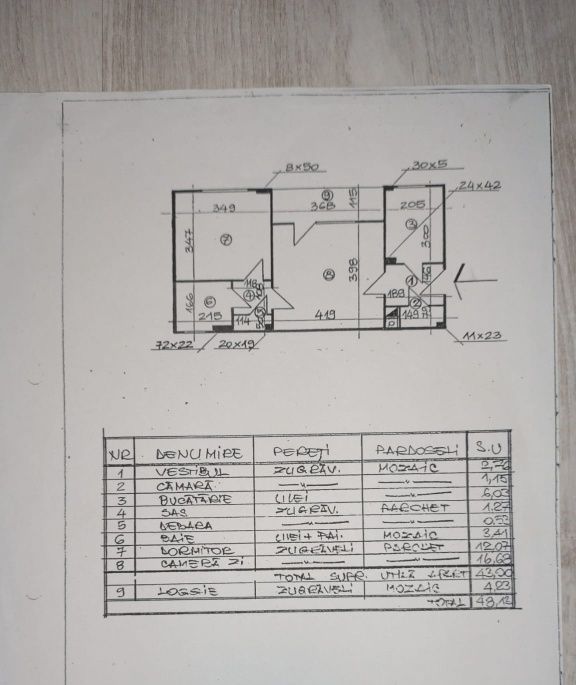 8×50
30×5
24×42
9
349
368
115
205
3
347
7
300
398
8
118
1
4
6
166
189
2
215
114
5
419
149
72×22
20×19
11×23
NR DENUMIRE PEREȚI PARDOSELI S.U
1 VESTIBUL ZUGRĂV. MOZAIC 2,76
2 CĂMARĂ —"— —"— 1,15
3 BUCĂTĂRIE ULEI —"— 6,03
4 SAS ZUGRĂV. PARCHET 1,27
5 DEBARA —"— —"— 0,53
6 BAIE ULEI+FAI. MOZAIC 3,41
7 DORMITOR ZUGRĂVELI PARCHET 12,07
8 CAMERĂ ZI —"— —"— 16,68
TOTAL SUPR. UTILĂ 43,90
9 LOGGIE ZUGRĂVELI MOZAIC 4,23
TOTAL 48,13